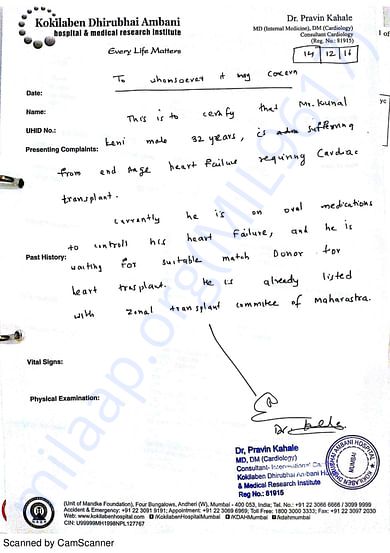 Kokilaben Dhirubhai Ambani
hospital & medical research institute
Every Life Matters
Dr. Pravin Kahale
MD (Internal Medicine), DM (Cardiology)
Consultant Cardiology
(Reg. No.: 81915)
14 12 16
1 of
To whomsoever it may concern
Date:
Name:
This is to cerify that Mr. Kunal
yc
UHID No.:
Leni male 32 years, is suffering
Presenting Complaints:
from end stage heart failure requring Cardiac
transplant.
Currently he is on oral medications
to controll his heart failure, and he is
Past History:
waiting for suitable match Donor for
heart trasplant. He is already listed
with zonal transplant commitee of maharastra.
Vital Signs:
Physical Examination:
milaap.org(MIL9617)
Dr. Pravin Kahale
MD, DM (Cardiology)
Consultant-
Kokilaben Dhirubhai Ambani Ho
& Medical Research Institute
Reg No.: 81915
KOKILABEN DHIRUBHAI AMBANI HOSPITAL
MUMBAI
(Unit of Mandke Foundation), Four Bungalows, Andheri (W), Mumbai - 400 053, India; Tel. No.: +91 22 3066 6666 / 3099 9999
Accident & Emergency: +91 22 3091 9191; Appointment: +91 22 3069 6969; Toll Free: 1800 3000 3333; Fax: +91 22 3097 2030
Web: www.kokilabenhospital.com /KokilabenHospitalMumbai /KDAHMumbai /kdahmumbai
CIN: U99999MH1998NPL127767
Scanned by CamScanner